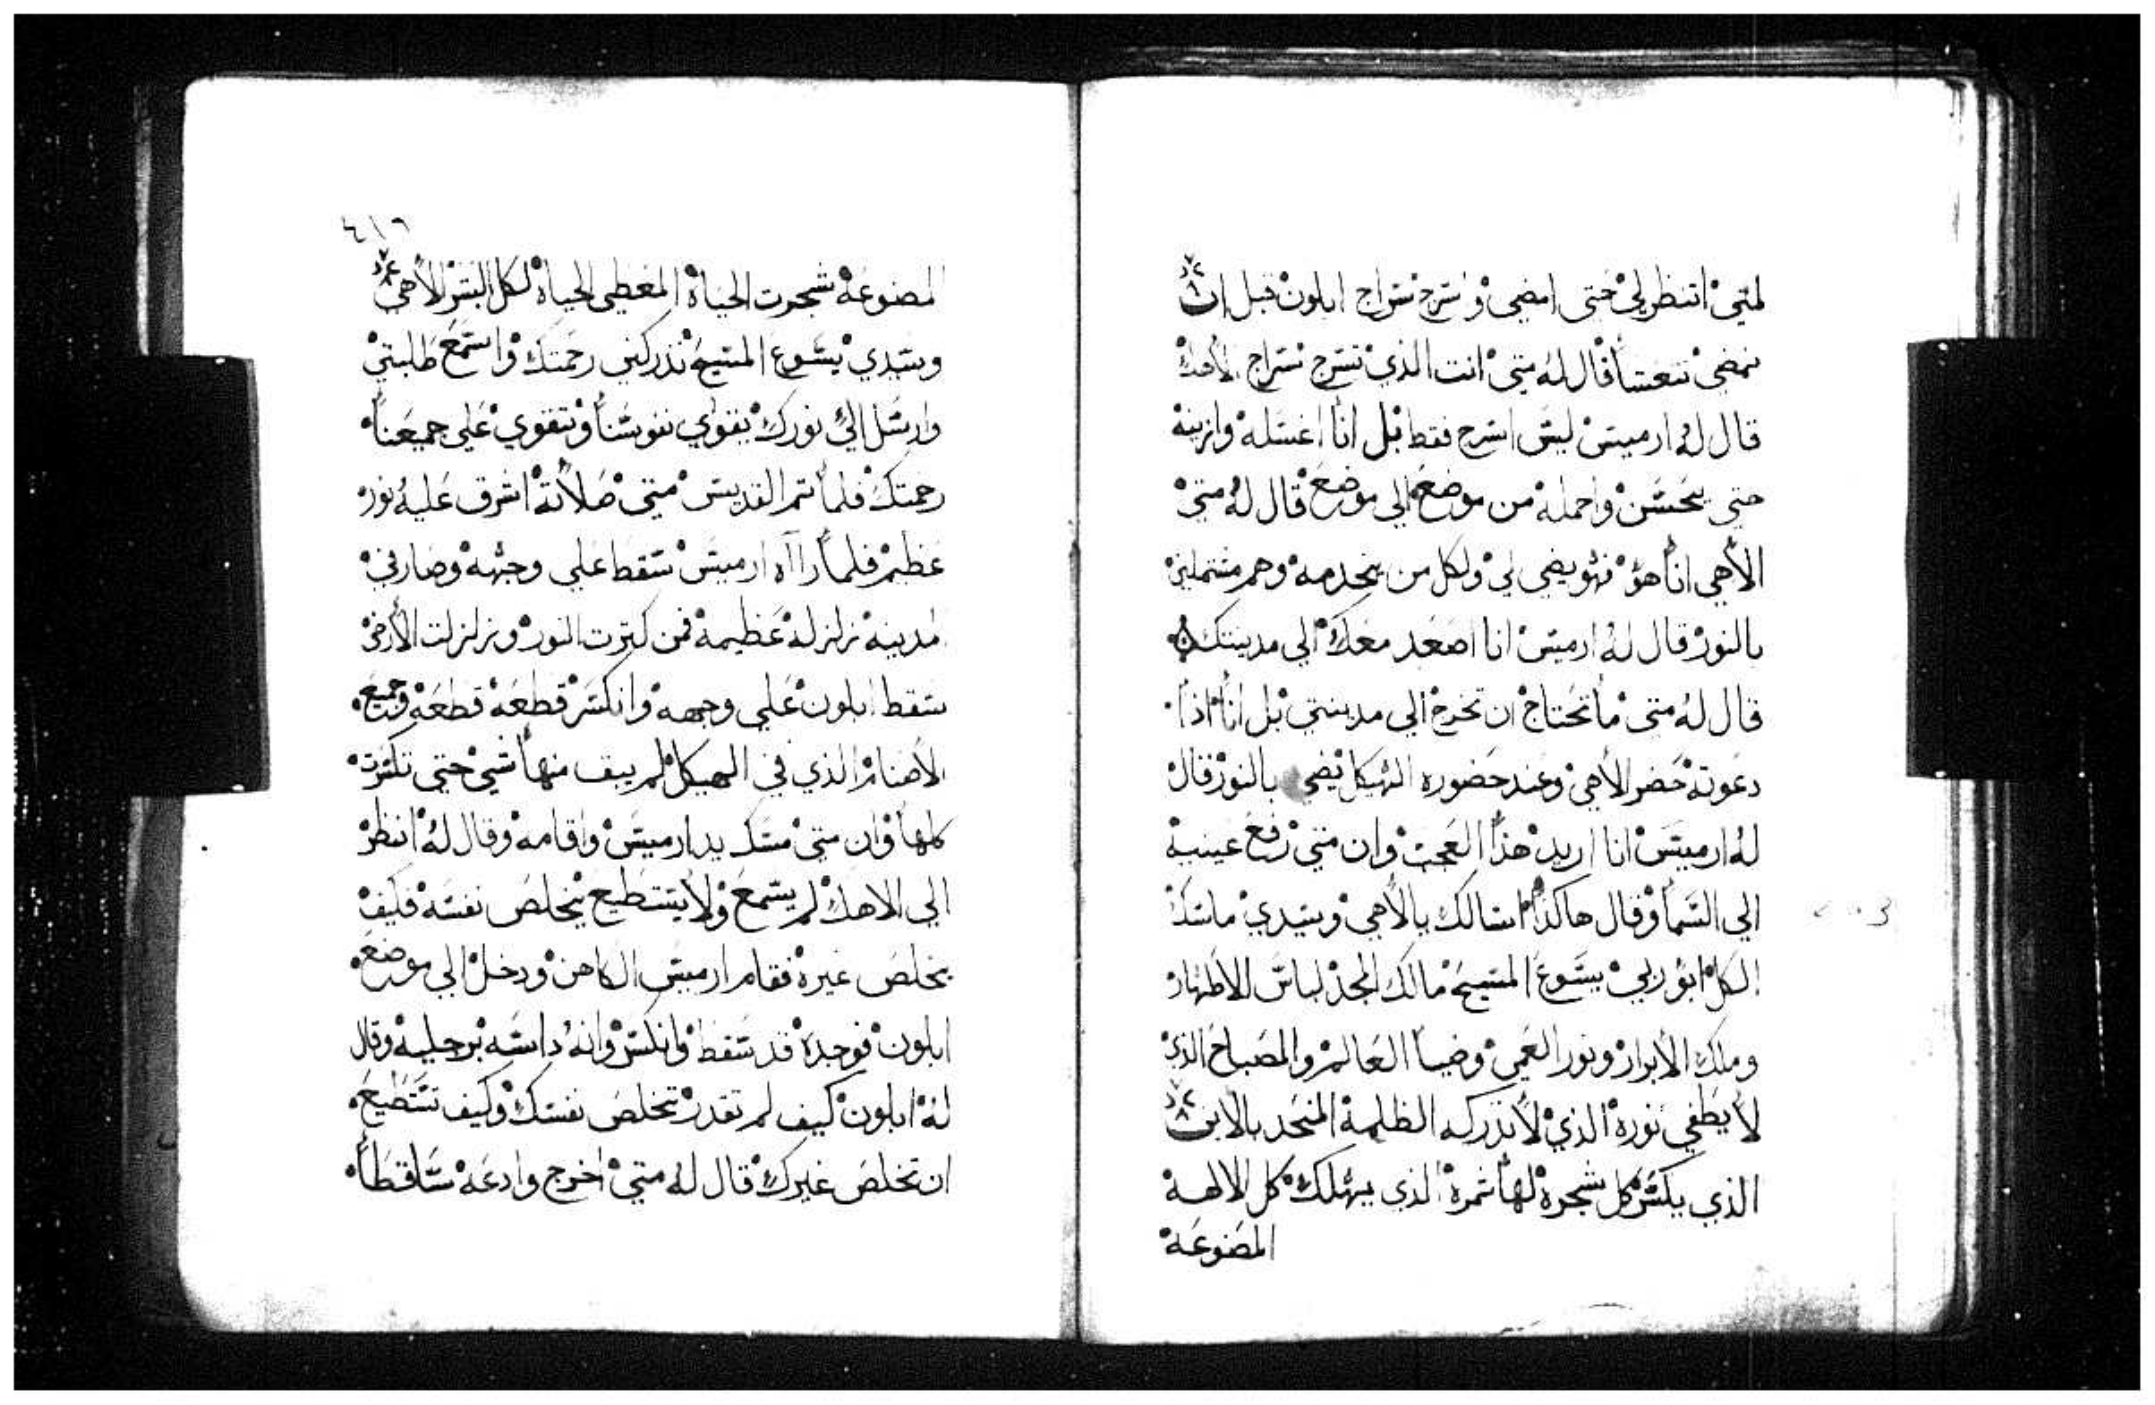 لمتي انتظر لي حتي امضي واسرج سراج ابلون قبل ان
نمضي نتعشا قال له متي انت الذي تسرج سراج لالاهك
قال له ارميس ليس اسرج فقط بل انا اغسله وازينه
حتي يحسن واحمله من موضع الي موضع قال له متي
الاهي انا هو فهو يضي لي ولكل من يخدمه وهم مشتملين
بالنور قال له ارميس انا اصعد معك الي مدينتك
قال له متي ما تحتاج ان تخرج الي مدينتي بل انا اذا
دعوته حضر الاهي وعند حضوره الهيكل يضي بالنور قال
له ارميس انا اريد هذا العجب وان متي رفع عينيه
الي السما وقال هاكذا اسالك يا الاهي وسيدي ماسك
الكل ابو ربي يسوع المسيح مالك المجد لباس الاطهار
وملك الابرار ونور العمي وضيا العالم والمصباح الذي
لا يطفي نوره الذي لا تدركه الظلمة المتحد بالابن
الذي يكسر كل شجرة لها ثمرة الذي يهلك كل الالهة
المصنوعة
٤١٦
المصنوعة شجرت الحياة المعطي الحياة لكل البشر الاهي
وسيدي يسوع المسيح تدركني رحمتك واستمع طلبتي
وارسل الي نورك يقوي نفوسنا وتقوي علي جميعنا
رحمتك فلما تم القديس متي صلاته اشرق عليه نور
عظيم فلما رااه ارميس سقط علي وجهه وصار في
المدينة زلزلة عظيمة فمن كترت النور وزلزلت الارض
سقط ابلون علي وجهه وانكسر قطعة قطعة وجميع
الاصنام الذي في الهيكل لم يبق منها شي حتي تكسرت
كلها وان متي مسك يد ارميس واقامه وقال له انظر
الي الاهك لم يسمع ولا يستطيع يخلص نفسه فكيف
يخلص غيره فقام ارميس الكاهن ودخل الي موضع
ابلون فوجده قد سقط وانكسر وانه داسه برجليه وقال
له ابلون كيف لم تقدر تخلص نفسك وكيف تستطيع
ان تخلص غيرك قال له متي اخرج وادعه ساقطا